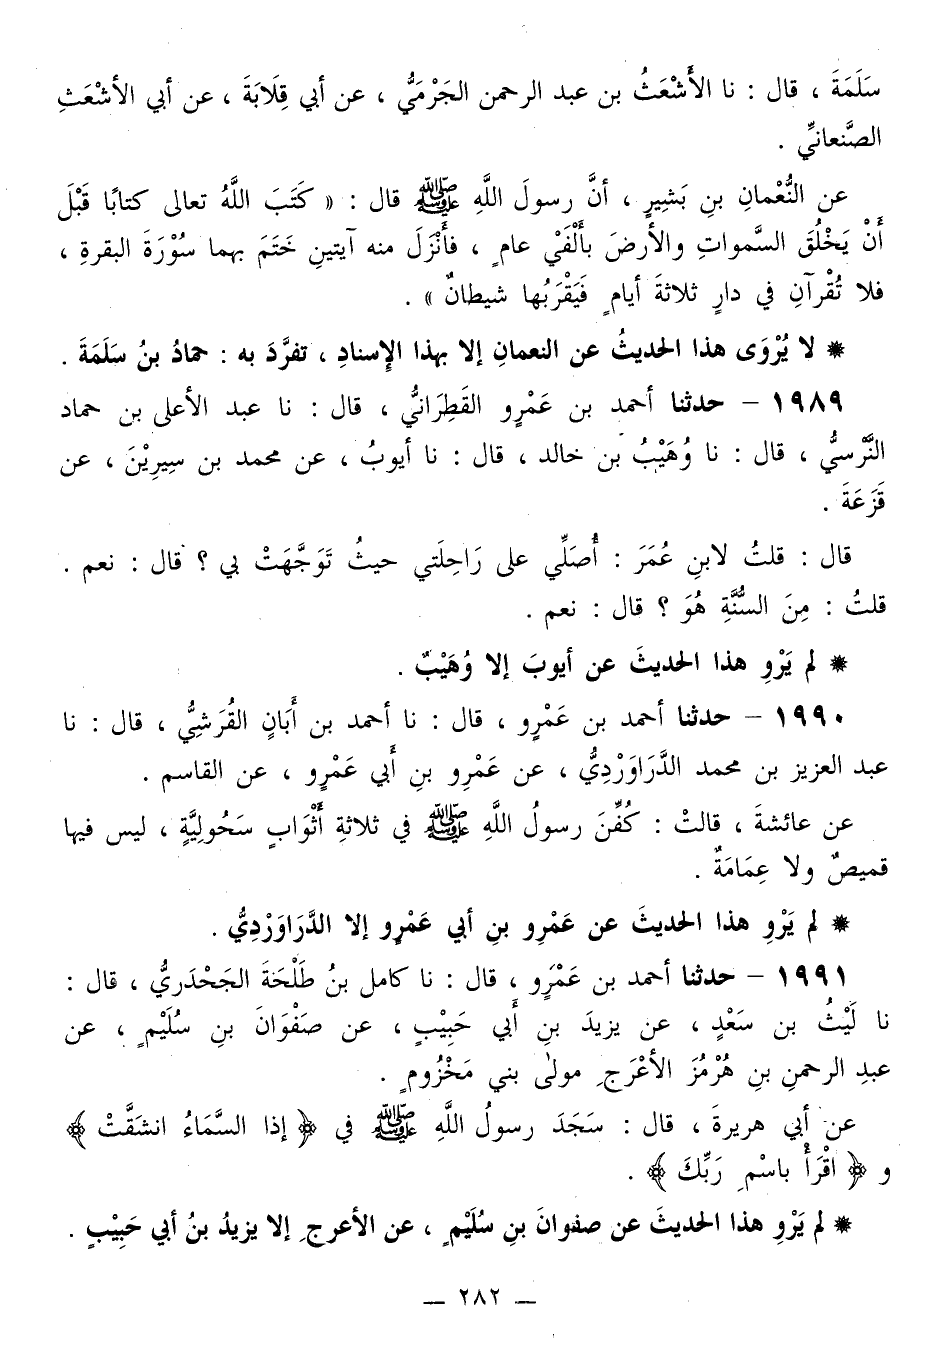 سَلَمَةَ ، قال : نا الأَشْعَثُ بن عبد الرحمن الجَرْمَيُّ ، عن أبي قِلَابَةَ ، عن أبي الأشْعَثِ
الصَّنعانيِّ .
عن النُّعْمانِ بنِ بَشِيرٍ ، أنَّ رسولَ اللَّهِ ﷺ قال : « كَتَبَ اللَّهُ تعالى كتابًا قَبْلَ
أَنْ يَخْلُقَ السَّمواتِ والأرضَ بأَلْفَيْ عامٍ ، فأَنْزَلَ منه آيتينِ خَتَمَ بهما سُوْرَةَ البقرةِ ،
فلا تُقْرآنِ في دارٍ ثلاثةَ أيامٍ فَيَقْرَبُها شيطانٌ » .
* لا يُرْوَى هذا الحديثُ عن النعمانِ إلا بهذا الإسنادِ ، تفرَّدَ به : حمادُ بنُ سَلَمَةَ .
١٩٨٩ – حدثنا أحمد بن عَمْرٍو القَطِرَانيُّ ، قال : نا عبد الأعلى بن حماد
النَّرْسيُّ ، قال : نا وُهَيْبُ بن خالد ، قال : نا أيوبُ ، عن محمد بن سِيرِيْنَ ، عن
قَزَعَةَ .
قال : قلتُ لابنِ عُمَرَ : أُصَلِّي على رَاحِلَتي حيثُ تَوَجَّهَتْ بي ؟ قال : نعم .
قلتُ : مِنَ السُّنَّةِ هُوَ ؟ قال : نعم .
* لم يَرْوِ هذا الحديثَ عن أيوبَ إلا وُهَيْبٌ .
١٩٩٠ – حدثنا أحمد بن عَمْرٍو ، قال : نا أحمد بن أَبَانٍ القُرَشِيُّ ، قال : نا
عبد العزيز بن محمد الدَّرَاوَرْدِيُّ ، عن عَمْرِو بنِ أَبي عَمْرٍو ، عن القاسم .
عن عائشةَ ، قالتْ : كُفِّنَ رسولُ اللَّهِ ﷺ في ثلاثةِ أَثْوَابٍ سَحُولِيَّةٍ ، ليس فيها
قميصٌ ولا عِمَامَةٌ .
* لم يَرْوِ هذا الحديثَ عن عَمْرِو بنِ أبي عَمْرٍو إلا الدَّرَاوَرْدِيُّ .
١٩٩١ – حدثنا أحمد بن عَمْرٍو ، قال : نا كامل بنُ طَلْحَةَ الجَحْدَرِيُّ ، قال :
نا لَيْثُ بن سَعْدٍ ، عن يزيدَ بنِ أَبي حَبِيْبٍ ، عن صَفْوَانَ بنِ سُلَيْمٍ ، عن
عبدِ الرحمنِ بنِ هُرْمُزَ الأعْرَجِ مولىٰ بني مَخْزُومٍ .
عن أبي هريرةَ ، قال : سَجَدَ رسولُ اللَّهِ ﷺ في ﴿ إذا السَّمَاءُ انشَقَّتْ ﴾
و ﴿ اقْرَأْ باسْمِ رَبِّكَ ﴾ .
* لم يَرْوِ هذا الحديثَ عن صفوانَ بنِ سُلَيْمٍ ، عن الأعرجِ إلا يزيدُ بنُ أبي حَبِيْبٍ .
— ٢٨٢ —